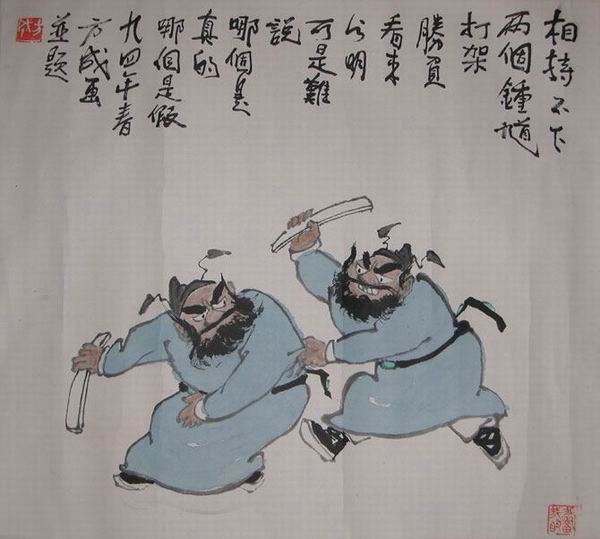 相持不下
两個鍾馗
打架
勝負
看来
分明
可是難
説
哪個是
真的
哪個是假
九四年春
方成画
並題